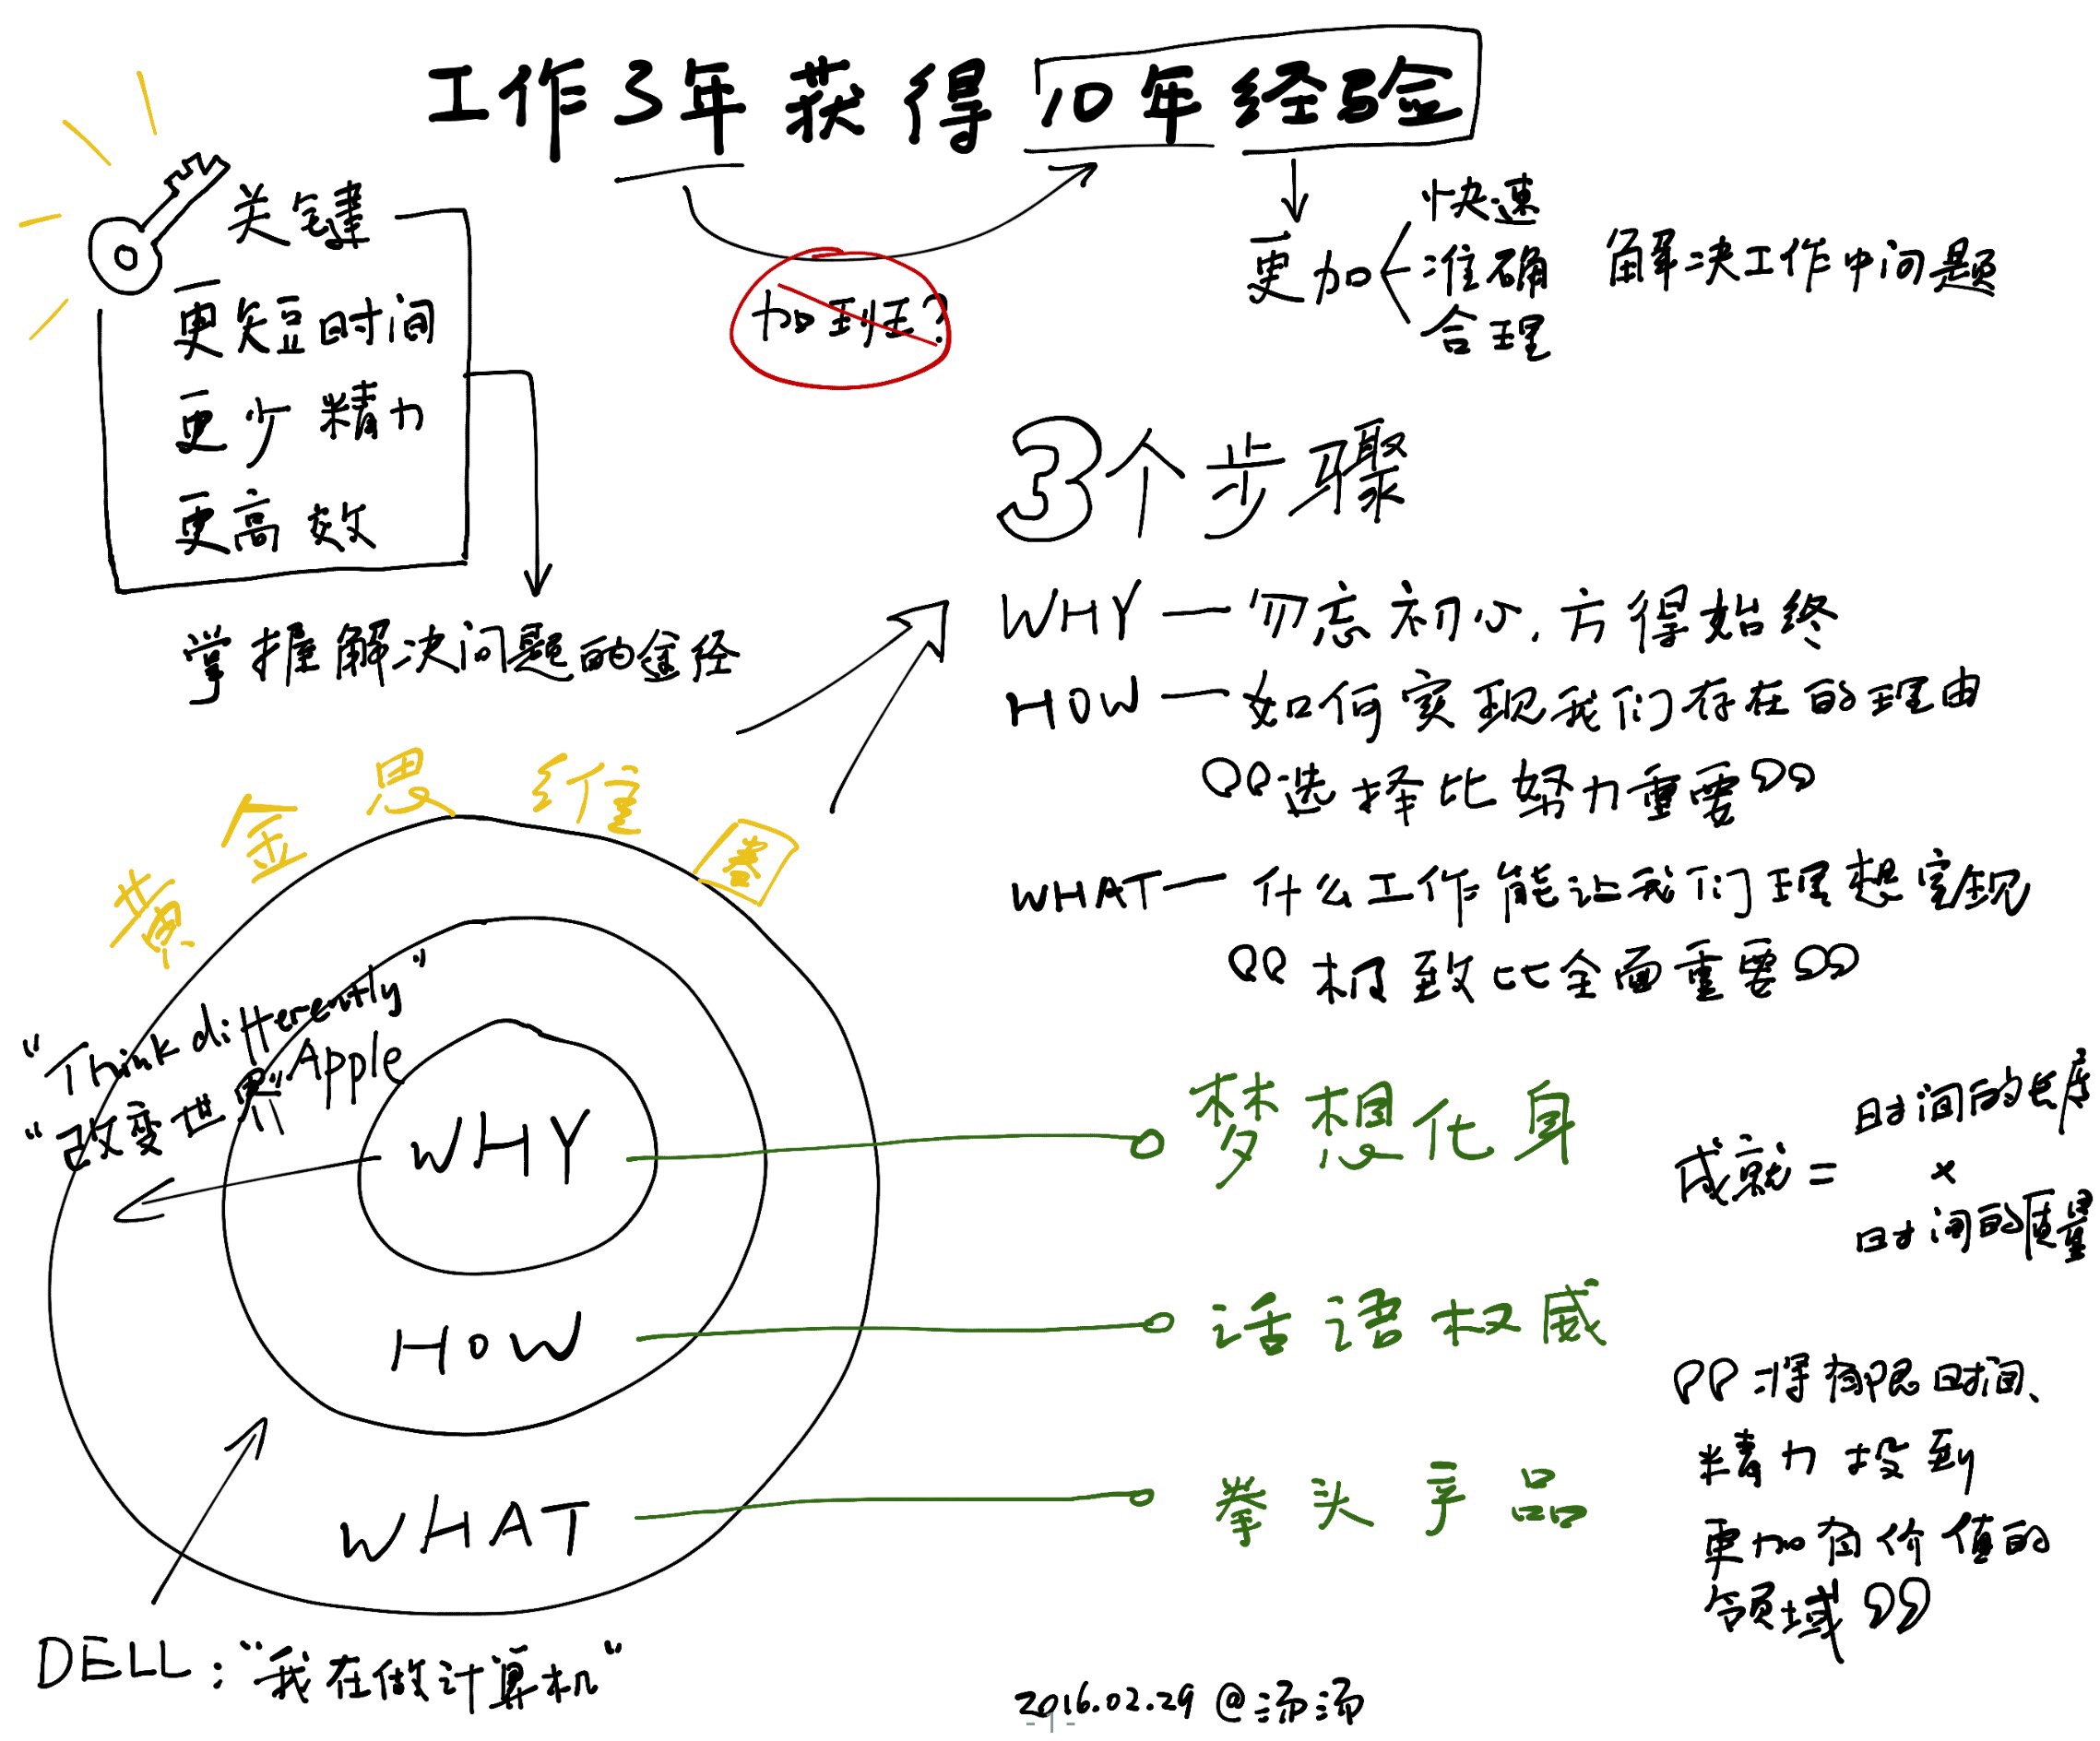 工作3年获得10年经验
关键
更短时间
更少精力
更高效
掌握解决问题的途径
加到班?
更加
快速
准确
合理
解决工作中问题
3个步骤
WHY — 勿忘初心,方得始终
HOW — 如何实现我们存在的理由
“选择比努力重要”
WHAT — 什么工作能让我们理想实现
“极致比全面重要”
黄金思维圈
"Think differently"
"改变世界" Apple
WHY
HOW
WHAT
DELL:"我在做计算机"
梦想化身
话语权威
拳头产品
成就 =
时间的长度
×
时间的质量
“将有限时间、
精力投到
更加有价值的
领域”
2016.02.29 @汤汤
- 1 -